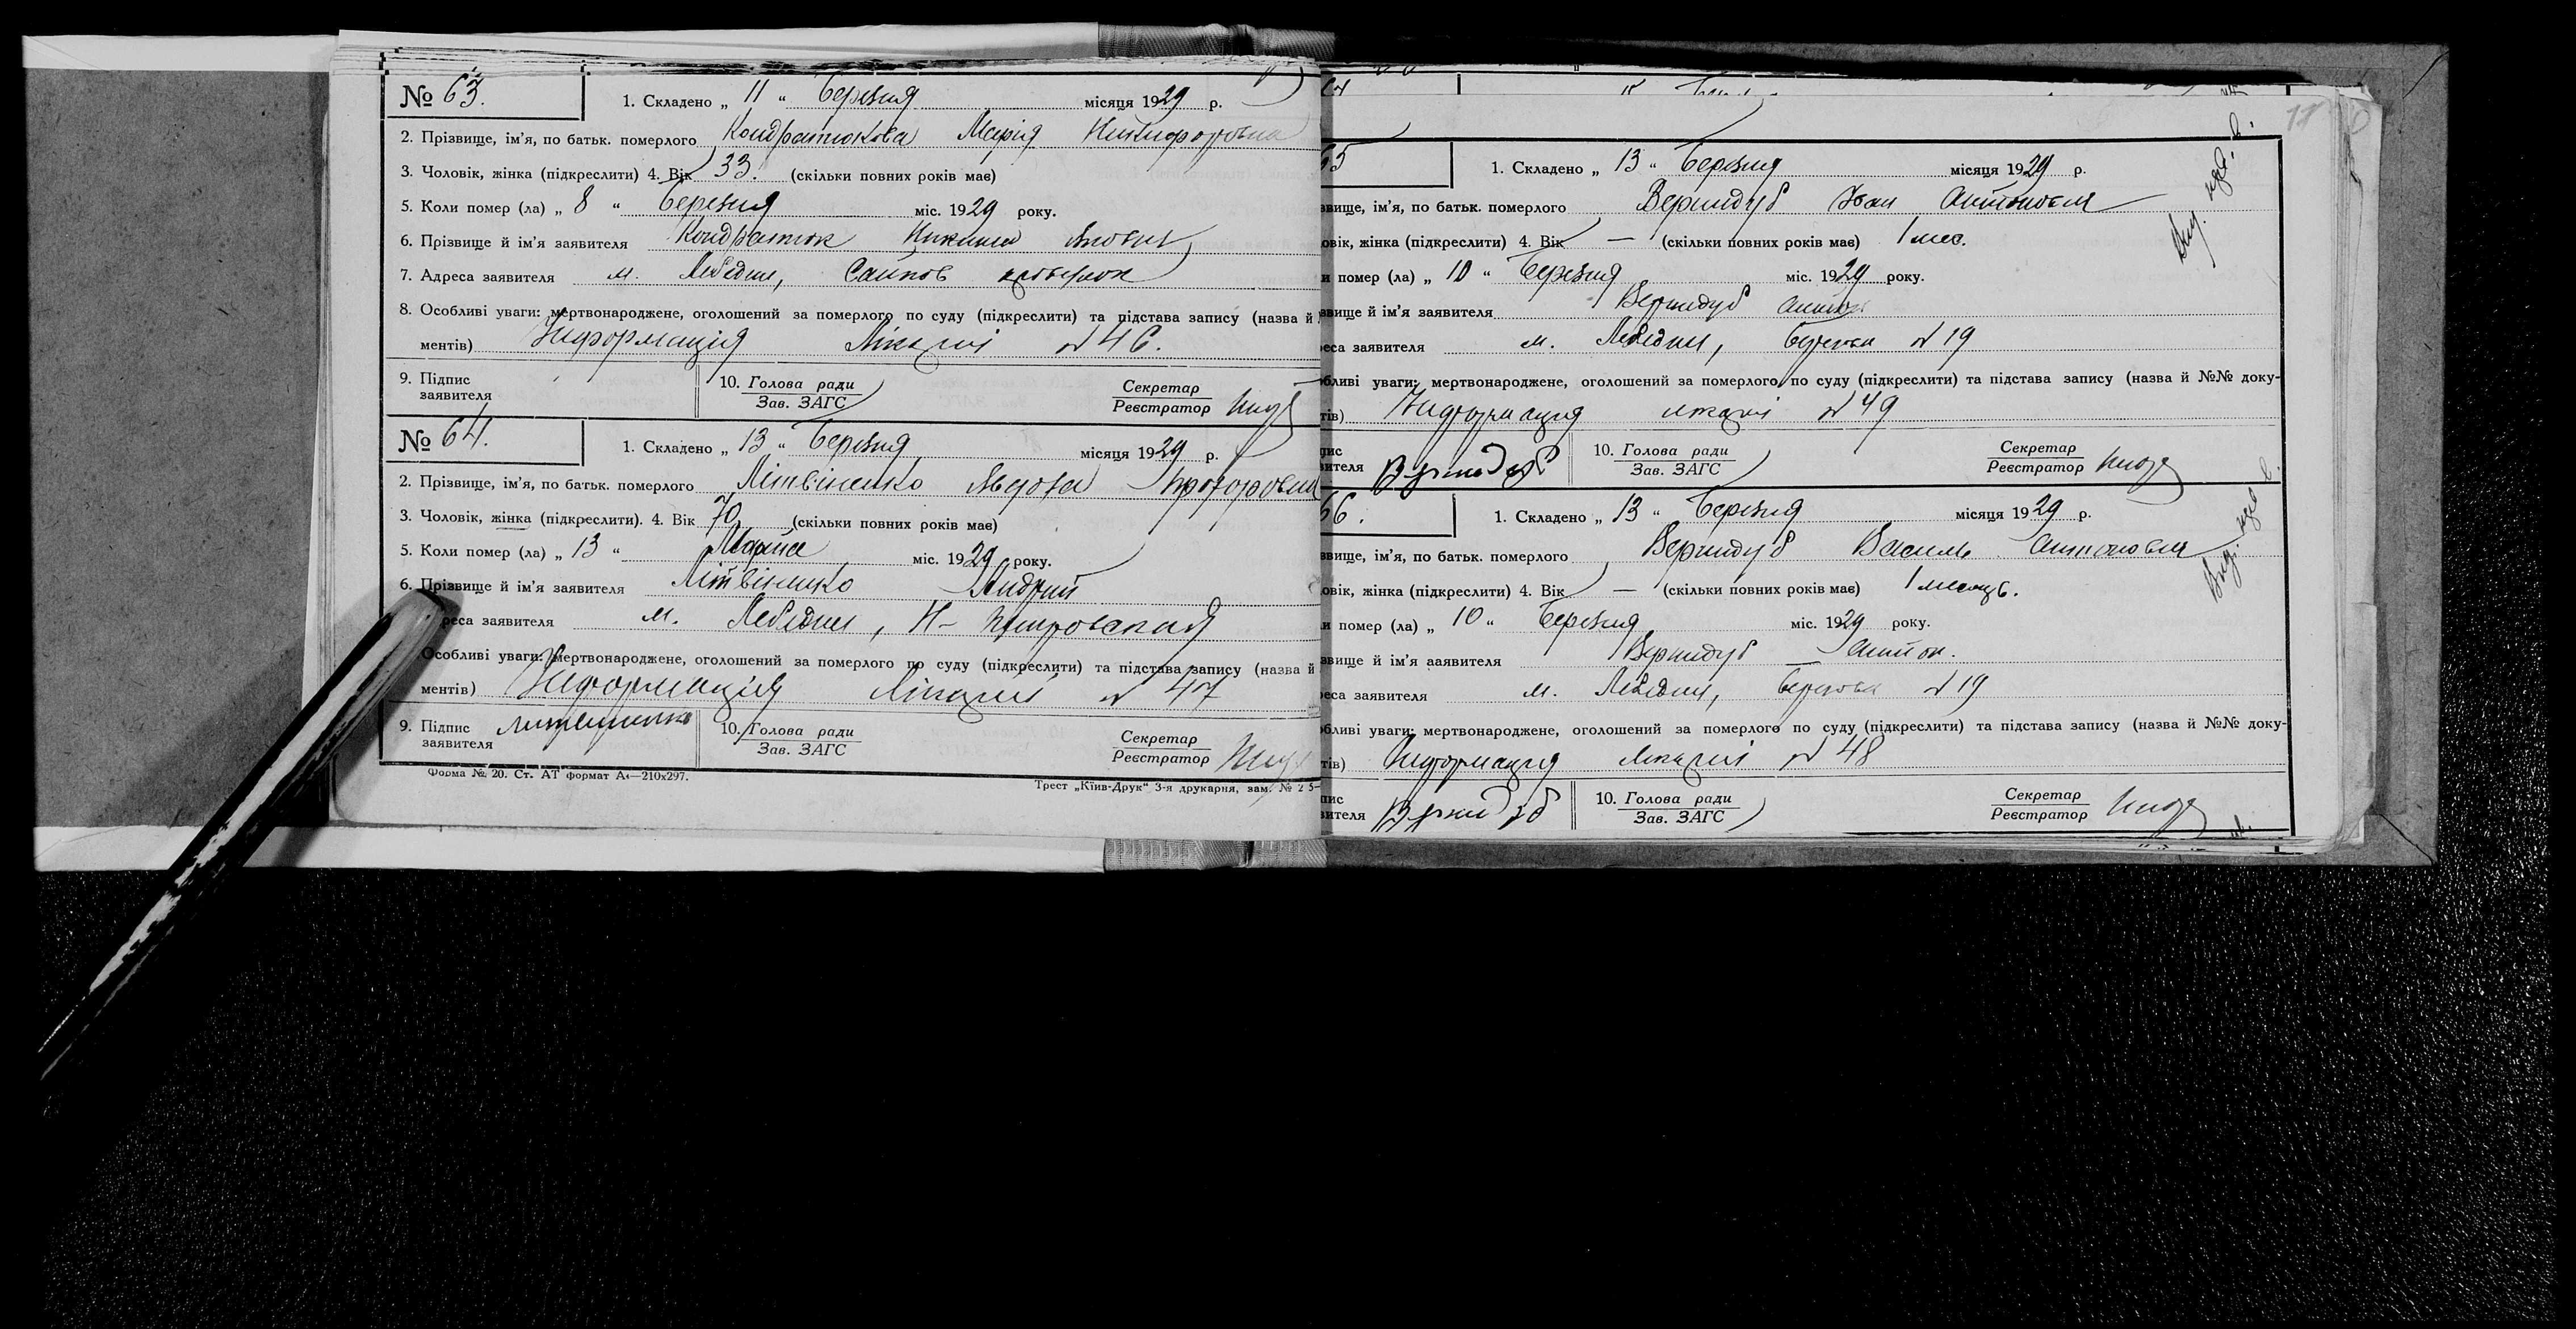 № 63.
1. Складено „ 11 “ Березня місяця 1929 р.
2. Прізвище, ім'я, по батьк. померлого Кондратюкова Марія Никифоровна
3. Чоловік, жінка (підкреслити) 4. Вік 33. (скільки повних років має)
5. Коли помер (ла) „ 8 “ Березня міс. 1929 року.
6. Прізвище й ім'я заявителя Кондратюк
7. Адреса заявителя м. Лебедин,
8. Особливі уваги: мертвонароджене, оголошений за померлого по суду (підкреслити) та підстава запису (назва й
ментів) Информація Лікарні № 46.
9. Підпис заявителя 10. Голова ради Зав. ЗАГС Секретар Реєстратор
№ 64.
1. Складено „ 13 “ Березня місяця 1929 р.
2. Прізвище, ім'я, по батьк. померлого Літвіненко Явдоха
3. Чоловік, жінка (підкреслити). 4. Вік 70 (скільки повних років має)
5. Коли помер (ла) „ 13 “ Марта міс. 1929 року.
6. Прізвище й ім'я заявителя Літвіненко Андрий
реса заявителя м. Лебедин, Н-Петровская
Особливі уваги: мертвонароджене, оголошений за померлого по суду (підкреслити) та підстава запису (назва й
ментів) Информація Лікарні № 47
9. Підпис заявителя 10. Голова ради Зав. ЗАГС Секретар Реєстратор
Форма № 20. Ст. АТ формат А₄—210х297.
Трест „Київ-Друк“ 3-я друкарня, зам. № 25-
65
1. Складено „ 13 “ Березня місяця 1929 р.
звище, ім'я, по батьк. померлого Вернидуб Іван Антонов
овік, жінка (підкреслити) 4. Вік — (скільки повних років має) 1 мес.
и помер (ла) „ 10 “ Березня міс. 1929 року.
звище й ім'я заявителя Вернидуб Антон
еса заявителя м. Лебедин, № 19
бливі уваги: мертвонароджене, оголошений за померлого по суду (підкреслити) та підстава запису (назва й №№ доку-
тів) Информация лікарні № 49
пис вителя Вернидуб 10. Голова ради Зав. ЗАГС Секретар Реєстратор
66.
1. Складено „ 13 “ Березня місяця 1929 р.
звище, ім'я, по батьк. померлого Вернидуб Василь Антонов
овік, жінка (підкреслити) 4. Вік — (скільки повних років має) 1 месяць.
и помер (ла) „ 10 “ Березня міс. 1929 року.
звище й ім'я ааявителя Вернидуб Антон.
еса заявителя м. Лебедин, № 19
бливі уваги: мертвонароджене, оголошений за померлого по суду (підкреслити) та підстава запису (назва й №№ доку-
тів) Информация Лікарні № 48
пис вителя Вернидуб 10. Голова ради Зав. ЗАГС Секретар Реєстратор